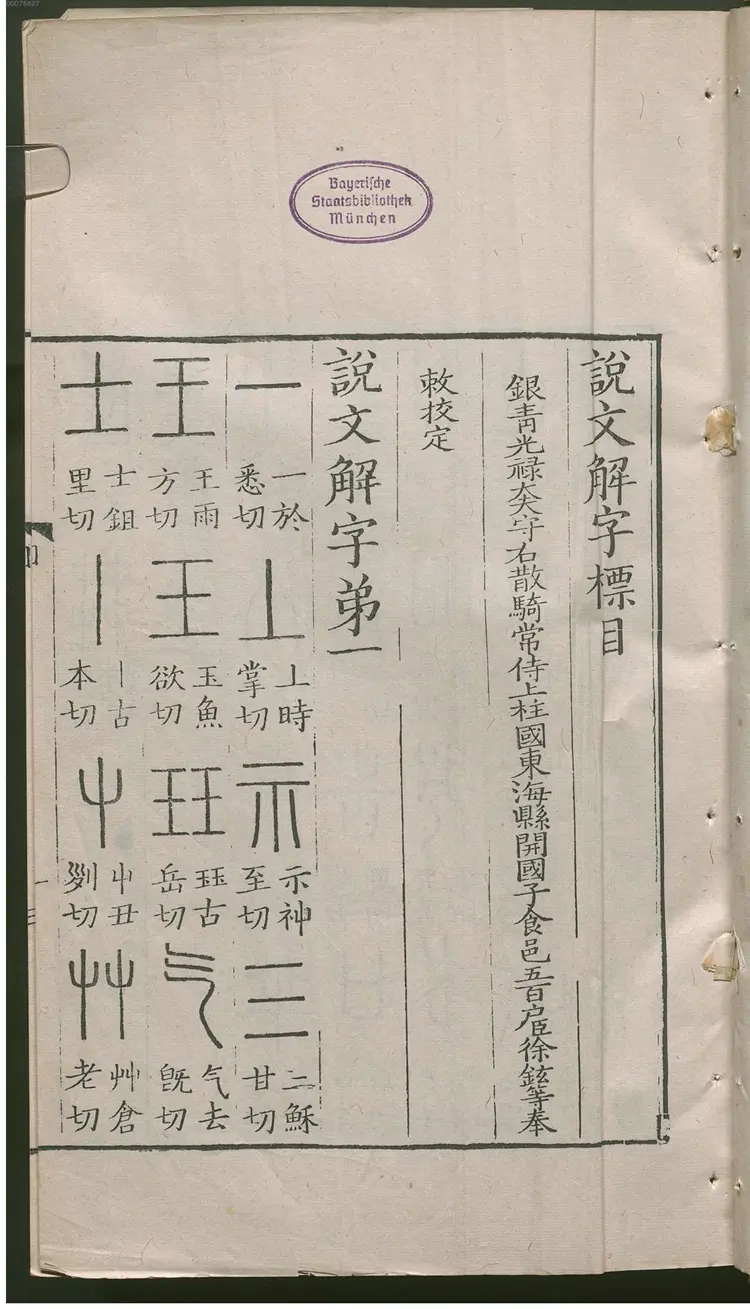 00075627
Bayerische
Staatsbibliothek
München
說文解字標目
銀青光祿大夫守右散騎常侍上柱國東海縣開國子食邑五百户臣徐鉉等奉
敕校定
說文解字弟一
一 一於悉切 丄 丄時掌切 示 示神至切 三 三穌甘切
王 王雨方切 玉 玉魚欲切 玨 玨古岳切 气 气去旣切
士 士鉏里切 丨 丨古本切 屮 屮丑列切 艸 艸倉老切